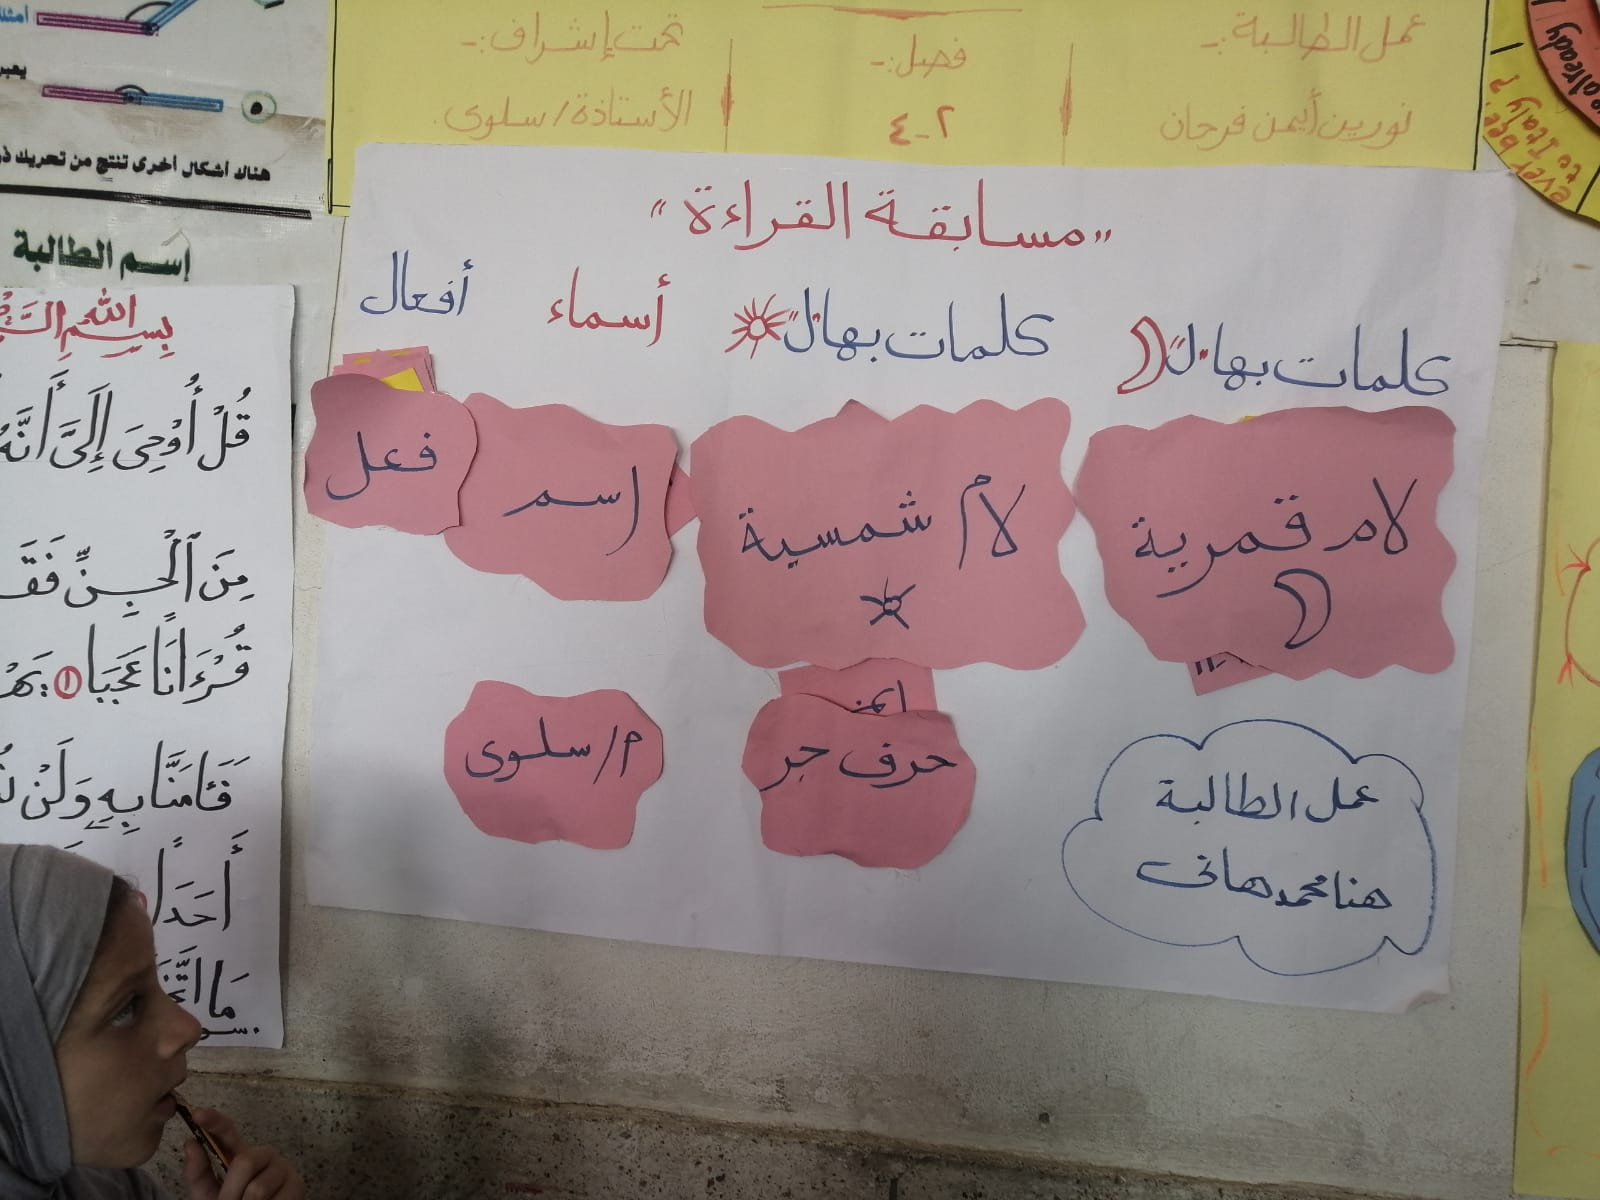 عمل الطالبة:-
نورين أيمن فرحان
فصل:-
٢-٤
تحت إشراف:-
الأستاذة/سلوى
"مسابقة القراءة"
كلمات بها "ال"
كلمات بها "ال"
أسماء
أفعال
لام قمرية
لام شمسية
اسم
فعل
حرف جر
م/سلوى
عمل الطالبة
هنا محمد هانى
هناك أشكال أخرى تنتج من تحريك
إسم الطالبة
بِسْمِ اللَّهِ
قُلْ أُوْحِىَ إِلَىَّ أَنَّهُ
مِنَ الْجِنِّ فَقَ
قُرْءَانًا عَجَبًا ١
فَئَامَنَّا بِهِ وَلَنْ
أَحَدًا
مَا اتَّخَ
already
ever bee
to Italy?